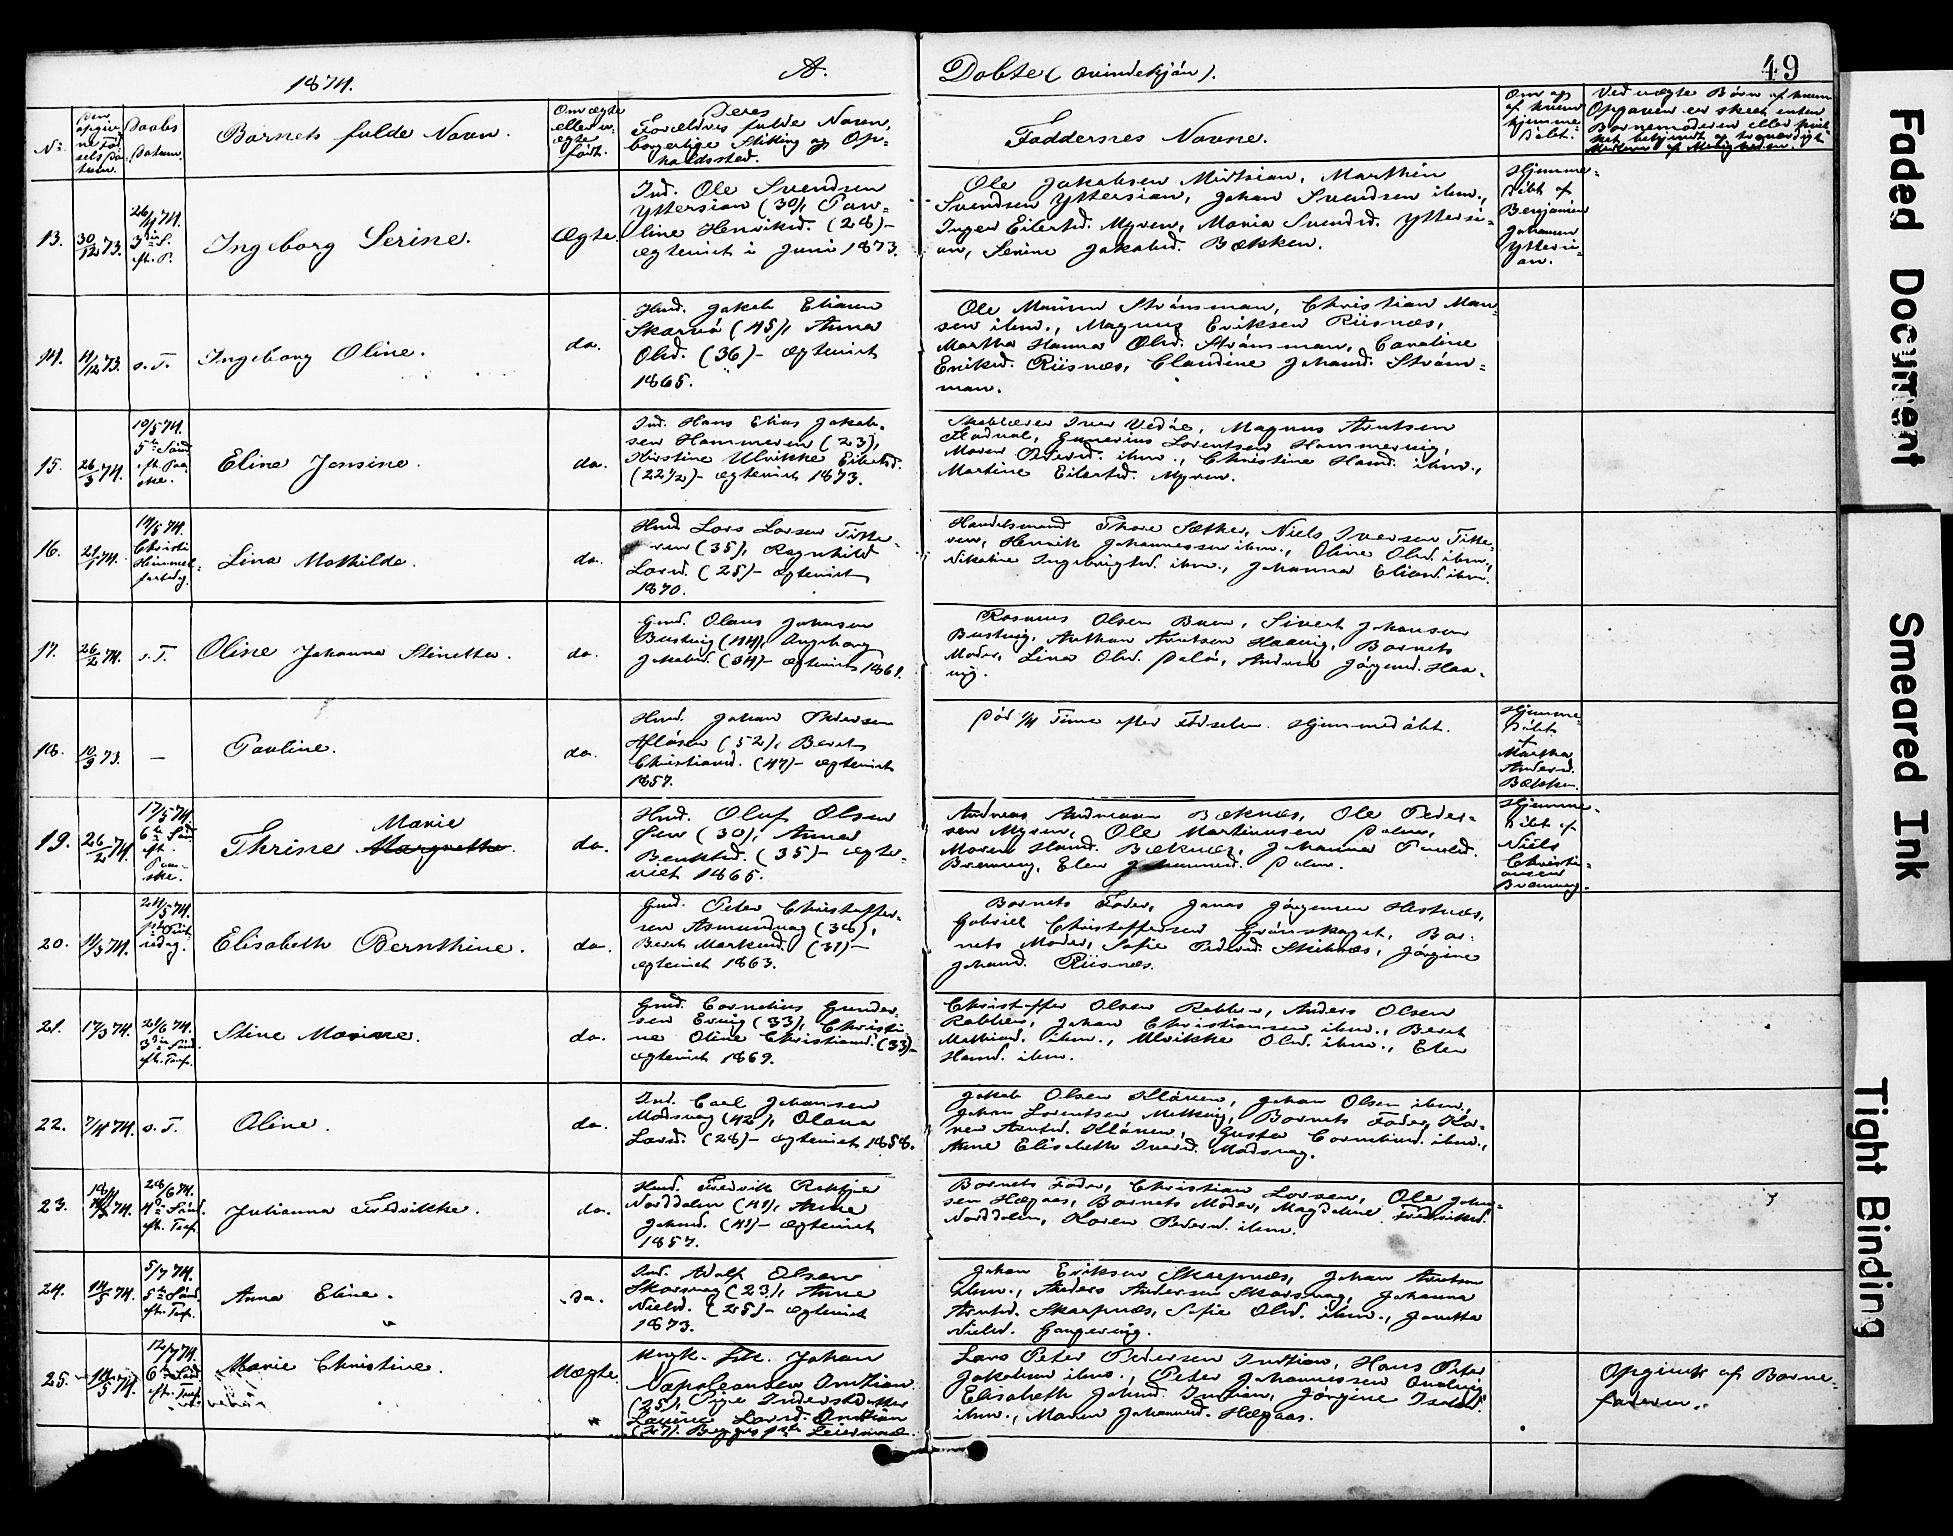 1874.
A.
Døbte (Qvindekjøn).
49
No.
Daabs Datum.
Barnets fulde Navn.
Om ægte eller uægte født.
Deres Forældres fulde Navn, borgerlige Stilling og Opholdssted.
Faddernes Navne.
Om og af hvem hjemmedøbt.
13.
30/12 73.
26/4 74. 3die S. eft. P.
Ingeborg Serine.
Ægte.
Ind. Ole Svendsen
Yttersian (30), Pau-
line Henriksd. (28) -
ægteviet i Juni 1873.
Ole Jakobsen Midtsian, Marthin
Svendsen Yttersian, Johan Svendsen ibm.,
Inger Eilertsd. Myren, Maria Svendsd. Yttersi-
an, Serine Jakobsd. Bækken.
Hjemme-
døbt af
Benjamin
Johansen
Yttersi-
an.
14.
4/12 73.
s. D.
Ingeborg Oline.
do.
Husd. Jakob Eliasen
Skarvø (45), Anna
Olsd. (36) - ægteviet
1865.
Ole Strømsman, Christian Han-
sen ibm., Magnus Eriksen Riisnæs,
Martha Hanna Olsd. Strømsman, Caroline
Eriksd. Riisnæs, Claudine Johansd. Strøms-
man.
15.
26/3 74.
10/5 74. 5te Sønd. eft. Paaske.
Eline Jensine.
do.
Ind. Hans Elias Jakob-
sen Hammeren (23),
Kirstine Ulrikke Eilertsd.
(22 1/2) - ægteviet 1873.
Skolelærer Iver Vedøe, Magnus Arntsen
Lorentsen Hammervig,
Maren ibm., Christine Hansd. ibm.,
Martine Eilertsd. Myren.
16.
21/1 74.
14/5 74. Christi Himmelfartsdag.
Lina Mathilde.
do.
Husd. Lars Larsen Titte-
ren (35), Ragnhild
Larsd. (25) - ægteviet
1870.
Handelsmand Thore Sæther, Niels Iversen Titte-
ren, Henrik Johannessen ibm., Oline Olsd. ibm.,
Nikoline Ingebrigtsd. ibm., Johanna Eliasd. ibm.
17.
26/2 74.
s. D.
Oline Johanna Stinetta.
do.
Gmd. Olaus Johansen
Bustvig (44), Ingeborg
Jakobsd. (34) - ægteviet 1861.
Rasmus Olsen Buen, Sivert Johansen
Bustvig, Anthon Arntsen Haavig, Barnets
Moder, Lina Olsd. Daløe, Andrea Jørgensd. Haa-
vig.
18.
10/9 73.
-
Pauline.
do.
Husd. Johan Pedersen
(52), Beret
Christiansd. (47) - ægteviet
1857.
Død 1/4 Time efter Fødselen. Hjemmedøbt.
Hjemme-
døbt
af
Martha
Andersd.
Bækken.
19.
26/2 74.
17/5 74. 6te Sønd. eft. Paaske.
Marie
Thrine Margrethe.
do.
Husd. Oluf Olsen
Øien (30), Anna
Bentsd. (35) - ægte-
viet 1865.
Andreas Andreasen Bæknæs, Ole Peder-
sen Myren, Ole Martinusen Dalen,
Maren Hansd. Bæknæs, Johanna Paulsd.
Bremvig, Elen Johannesd. Dalen.
Hjemme-
døbt af
Niels
Christi-
ansen
Bremvig.
20.
11/3 74.
24/5 74. 1ste Pintsedag.
Elisabeth Bernthine.
do.
Gmd. Peter Christoffer-
sen Asmundvag (38),
Beret Markusd. (31) -
ægteviet 1863.
Barnets Fader, Jonas Jørgensen Hestnæs,
Gabriel Christoffersen Grønskaget, Bar-
nets Moder, Sofie Pedersd. Jørgine
Johansd. Riisnæs.
21.
17/3 74.
21/6 74. 3die Sønd. eft. Tref.
Stine Marine.
do.
Gmd. Cornelius Gunder-
sen Ervig (33), Christi-
ne Oline Christiansd. (33) -
ægteviet 1869.
Christoffer Olsen Rabben, Anders Olsen
Rabben, Johan Christiansen ibm., Beret
Mathiasd. ibm., Ulrikke Olsd. ibm., Elen
Hansd. ibm.
22.
7/4 74.
s. D.
Oline.
do.
Ind. Carl Johansen
Madsvag (42), Olava
Larsd. (28) - ægteviet 1858.
Jakob Olsen Klønen, Johan Olsen ibm.,
Johan Lorentsen Melkvig, Barnets Fader, Ka-
ren Arntsd. Klønen, Gusta Corneliusd. ibm.,
Anne Elisabeth Iversd. Madsvag.
23.
28/6 74. 4de Sønd. eft. Tref.
Julianna Fredrikke.
do.
Husd. Fredrik
Norddalen (41), Anne
Johnsd. (41) - ægteviet
1857.
Barnets Fader, Christian Larsen, Ole Johan-
sen Hægaas, Barnets Moder, Magdalene Fredriksd.
Norddalen, Karen Pedersd. ibm.
24.
14/5 74.
5/7 74. 5te Sønd. eft. Tref.
Anna Eline.
do.
Ind. Adolf Olsen
Skarsvag (23), Anne
Nielsd. (25) - ægteviet
1873.
Johan Eriksen Skarpnæs, Johan Arntsen
ibm., Anders Andersen Skarsvag, Johanna
Arntsd. Skarpnæs, Sofie Olsd. ibm., Janetta
Nielsd. Gangervig.
25.
14/5 74.
12/7 74. 6te Sønd. eft. Tref.
Marie Christine.
Uægte.
Ungk. Johan
Napoleonsen
(25), Pige Inderstdatter
Lavine Larsd.
(27). Begges 1ste Leiermaal.
Lars Peter Pedersen Indsian, Hans Peter
Jakobsen ibm., Peter Johannessen
Elisabeth Johnsd. Indsian, Jørgine
ibm., Maren Johannesd. Hægaas.
Opgivet af Barne-
faderen.
Faded Document
Smeared Ink
Tight Binding